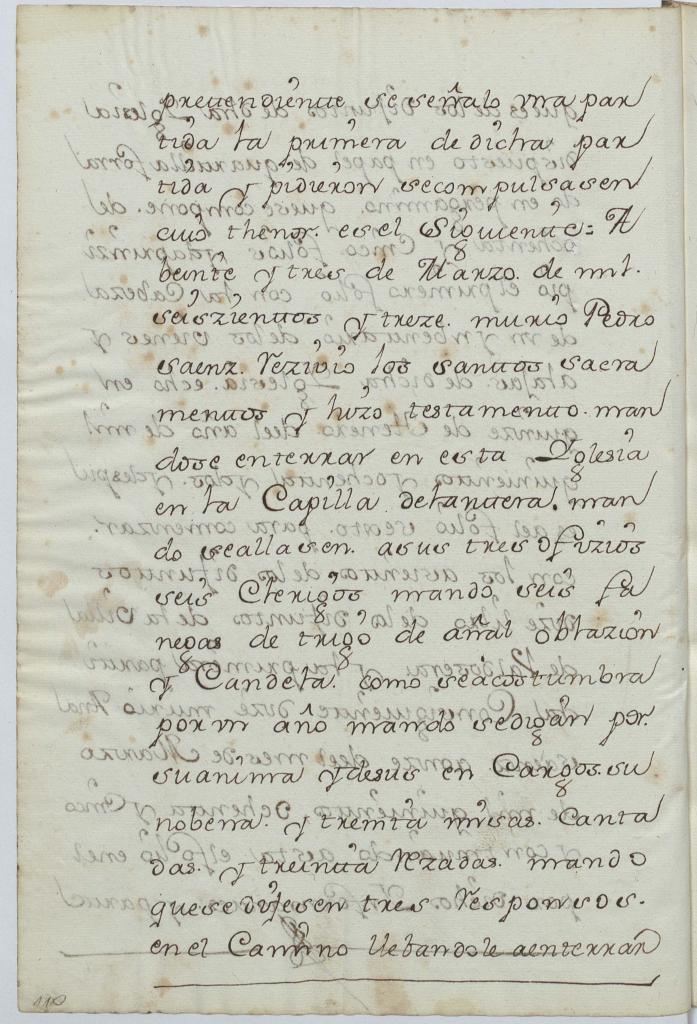 pretendiente se señalo vna par
tida la primera de dicha par
tida y pidieron se compulsasen
cuio thenor. es el Siguiente = A
beinte y tres de Marzo. de mil.
seiszientos y treze. murio Pedro
saenz. Rezivio los santtos sacra
mentos y hizo testamento. man
dose enterrar en esta Yglesia
en la Capilla delantera. man
do seallasen. asus tres ofizios
seis Clerigos mando seis fa
negas de trigo de añal oblazion
y Candela. como seacostumbra
por vn año mando sedigan por.
suanima y desus en Cargos. su
nobena. y treinta misas. Canta
das. y treinta Rezadas. mando
quese dijesen tres Responsos.
en el Camino llebandole aenterrar
110